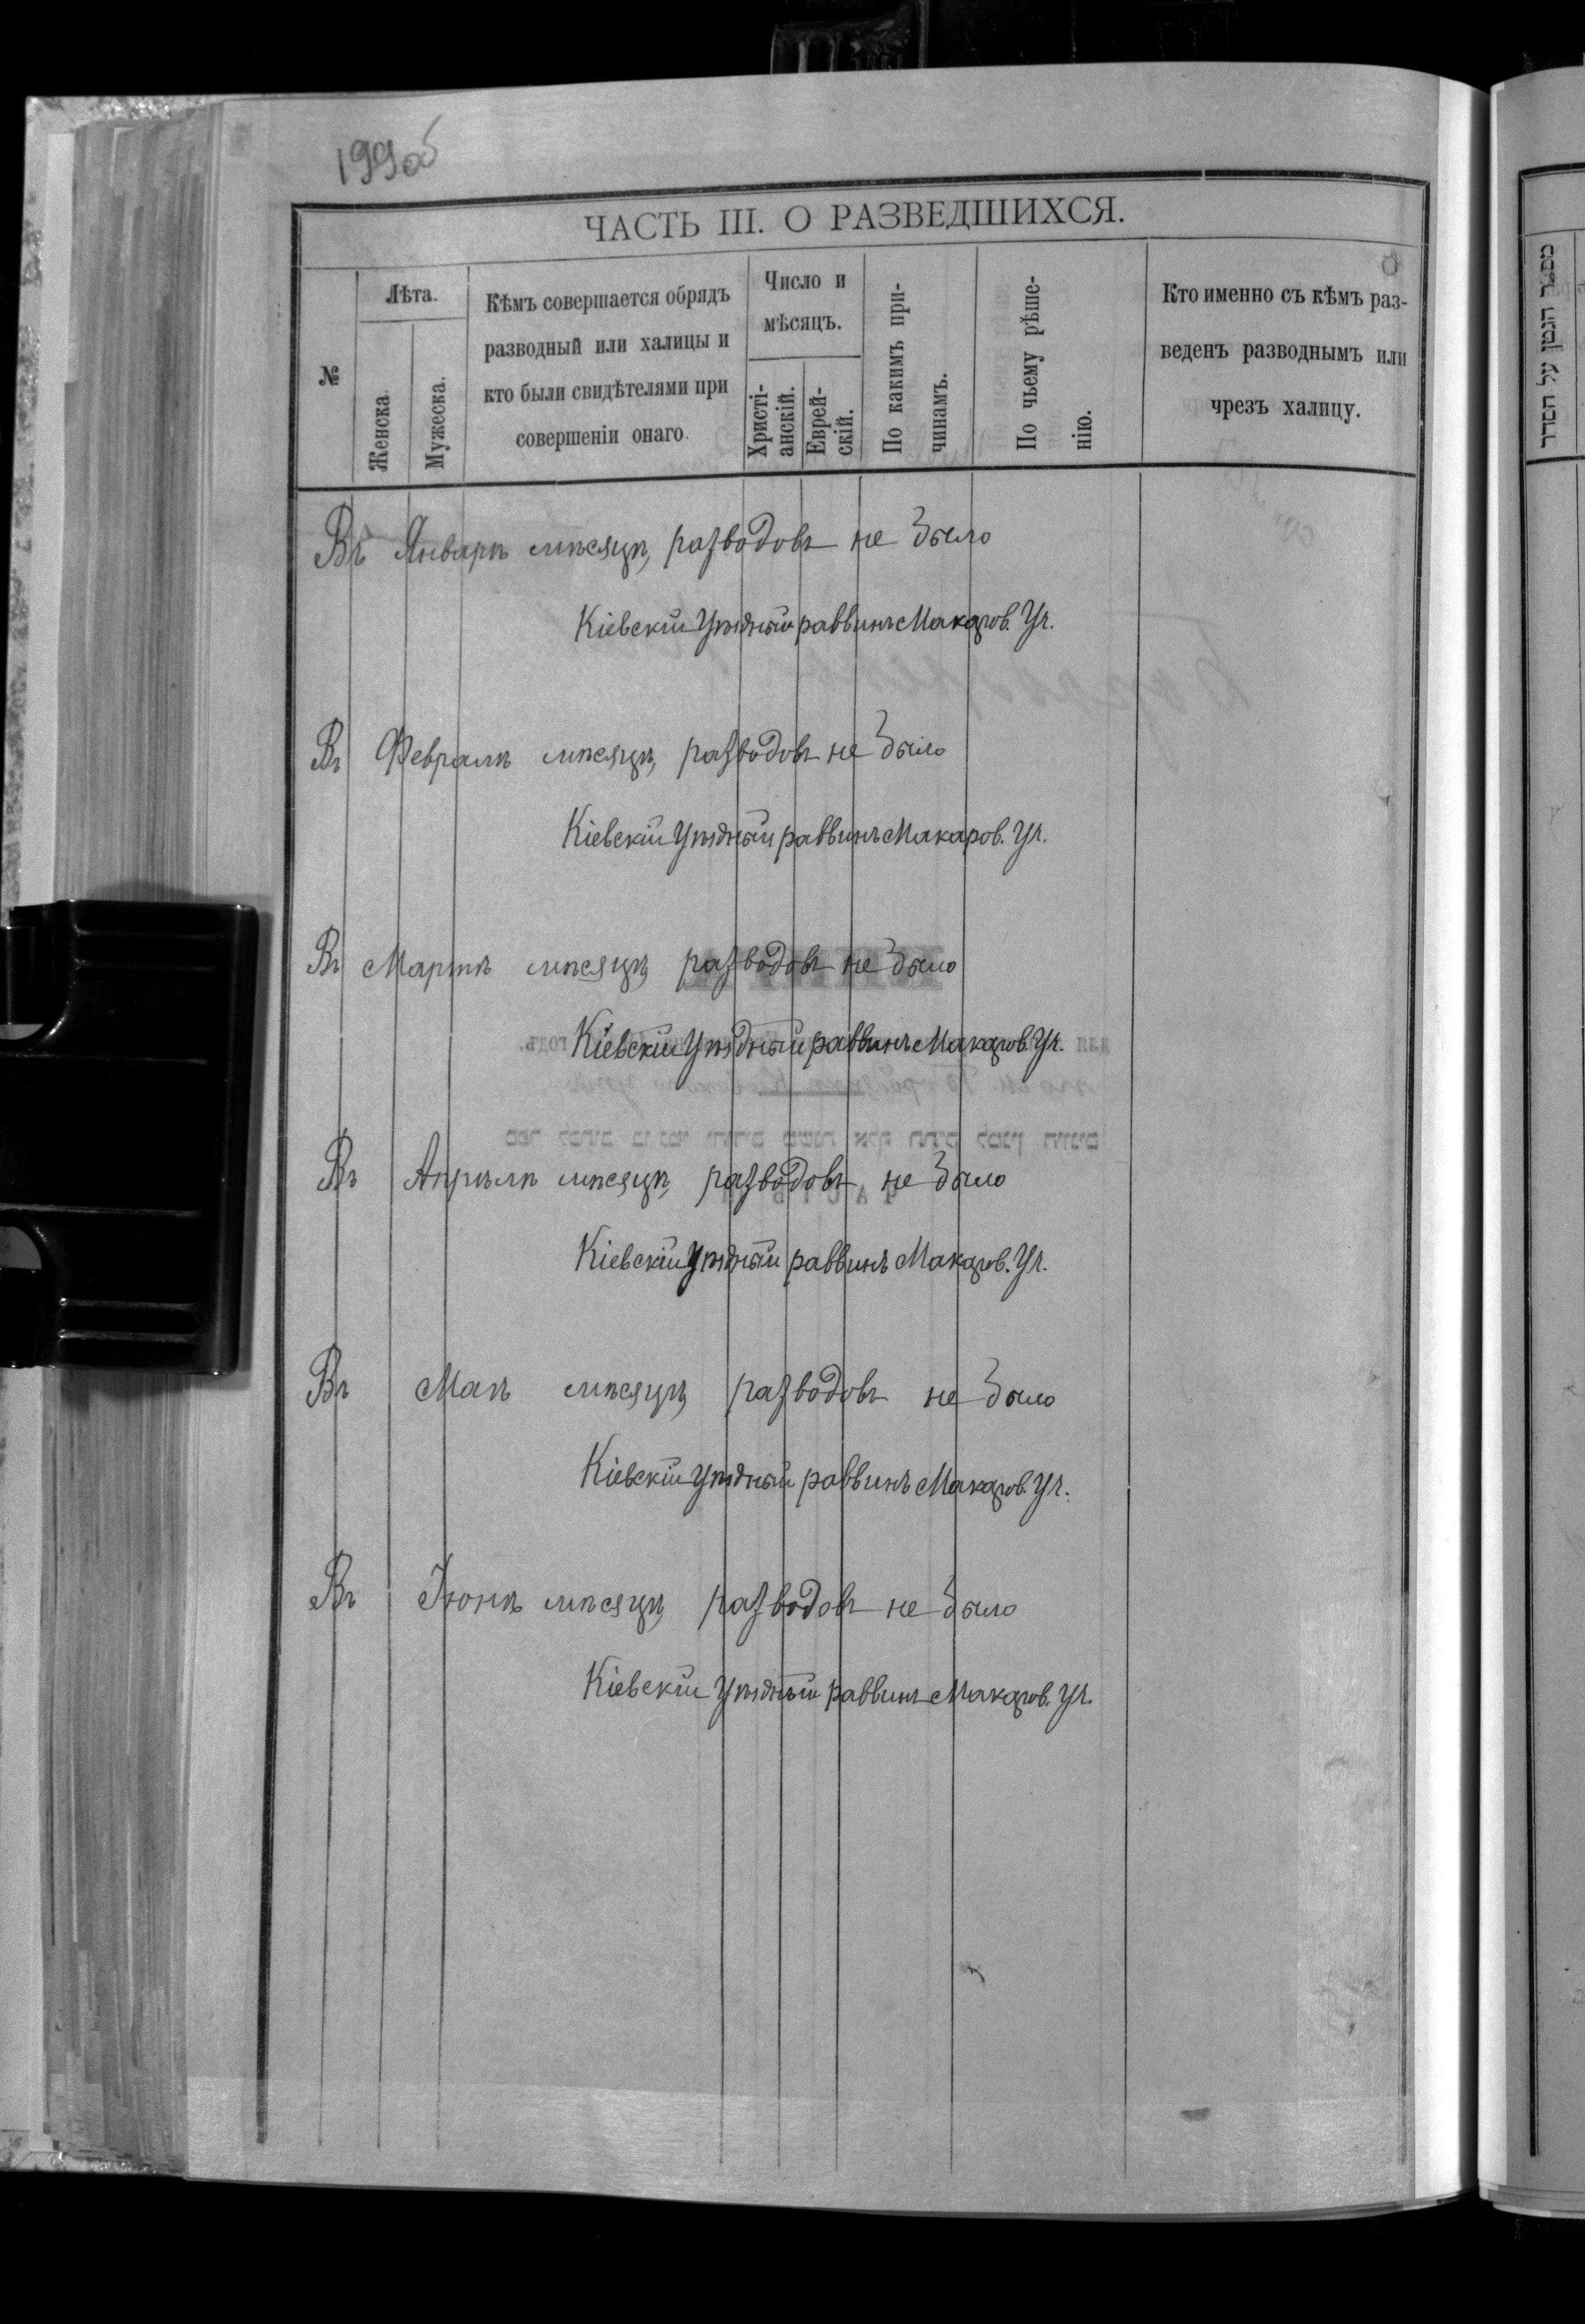 199 об
ЧАСТЬ III. О РАЗВЕДШИХСЯ.
№
Лѣта.
Женска.
Мужеска.
Кѣмъ совершается обрядъ
разводный или халицы и
кто были свидѣтелями при
совершеніи онаго.
Число и
мѣсяцъ.
Христі-
анскій.
Еврей-
скій.
По какимъ при-
чинамъ.
По чьему рѣше-
нію.
Кто именно съ кѣмъ раз-
веденъ разводнымъ или
чрезъ халицу.
Въ Январѣ мѣсяцѣ, разводовъ не было
Кіевскій Уѣздный раввинъ Макаров. Уч.
Въ Февралѣ мѣсяцѣ, разводовъ не было
Кіевскій Уѣздный раввинъ Макаров. Уч.
Въ Мартѣ мѣсяцѣ, разводовъ не было
Кіевскій Уѣздный раввинъ Макаров. Уч.
Въ Апрѣлѣ мѣсяцѣ, разводовъ не было
Кіевскій Уѣздный раввинъ Макаров. Уч.
Въ Маѣ мѣсяцѣ, разводовъ не было
Кіевскій Уѣздный раввинъ Макаров. Уч.
Въ Іюнѣ мѣсяцѣ, разводовъ не было
Кіевскій Уѣздный раввинъ Макаров. Уч.